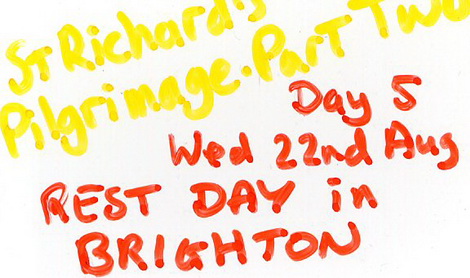 St Richard's
Pilgrimage. Part Two
Day 5
Wed 22nd Aug
REST DAY in
BRIGHTON